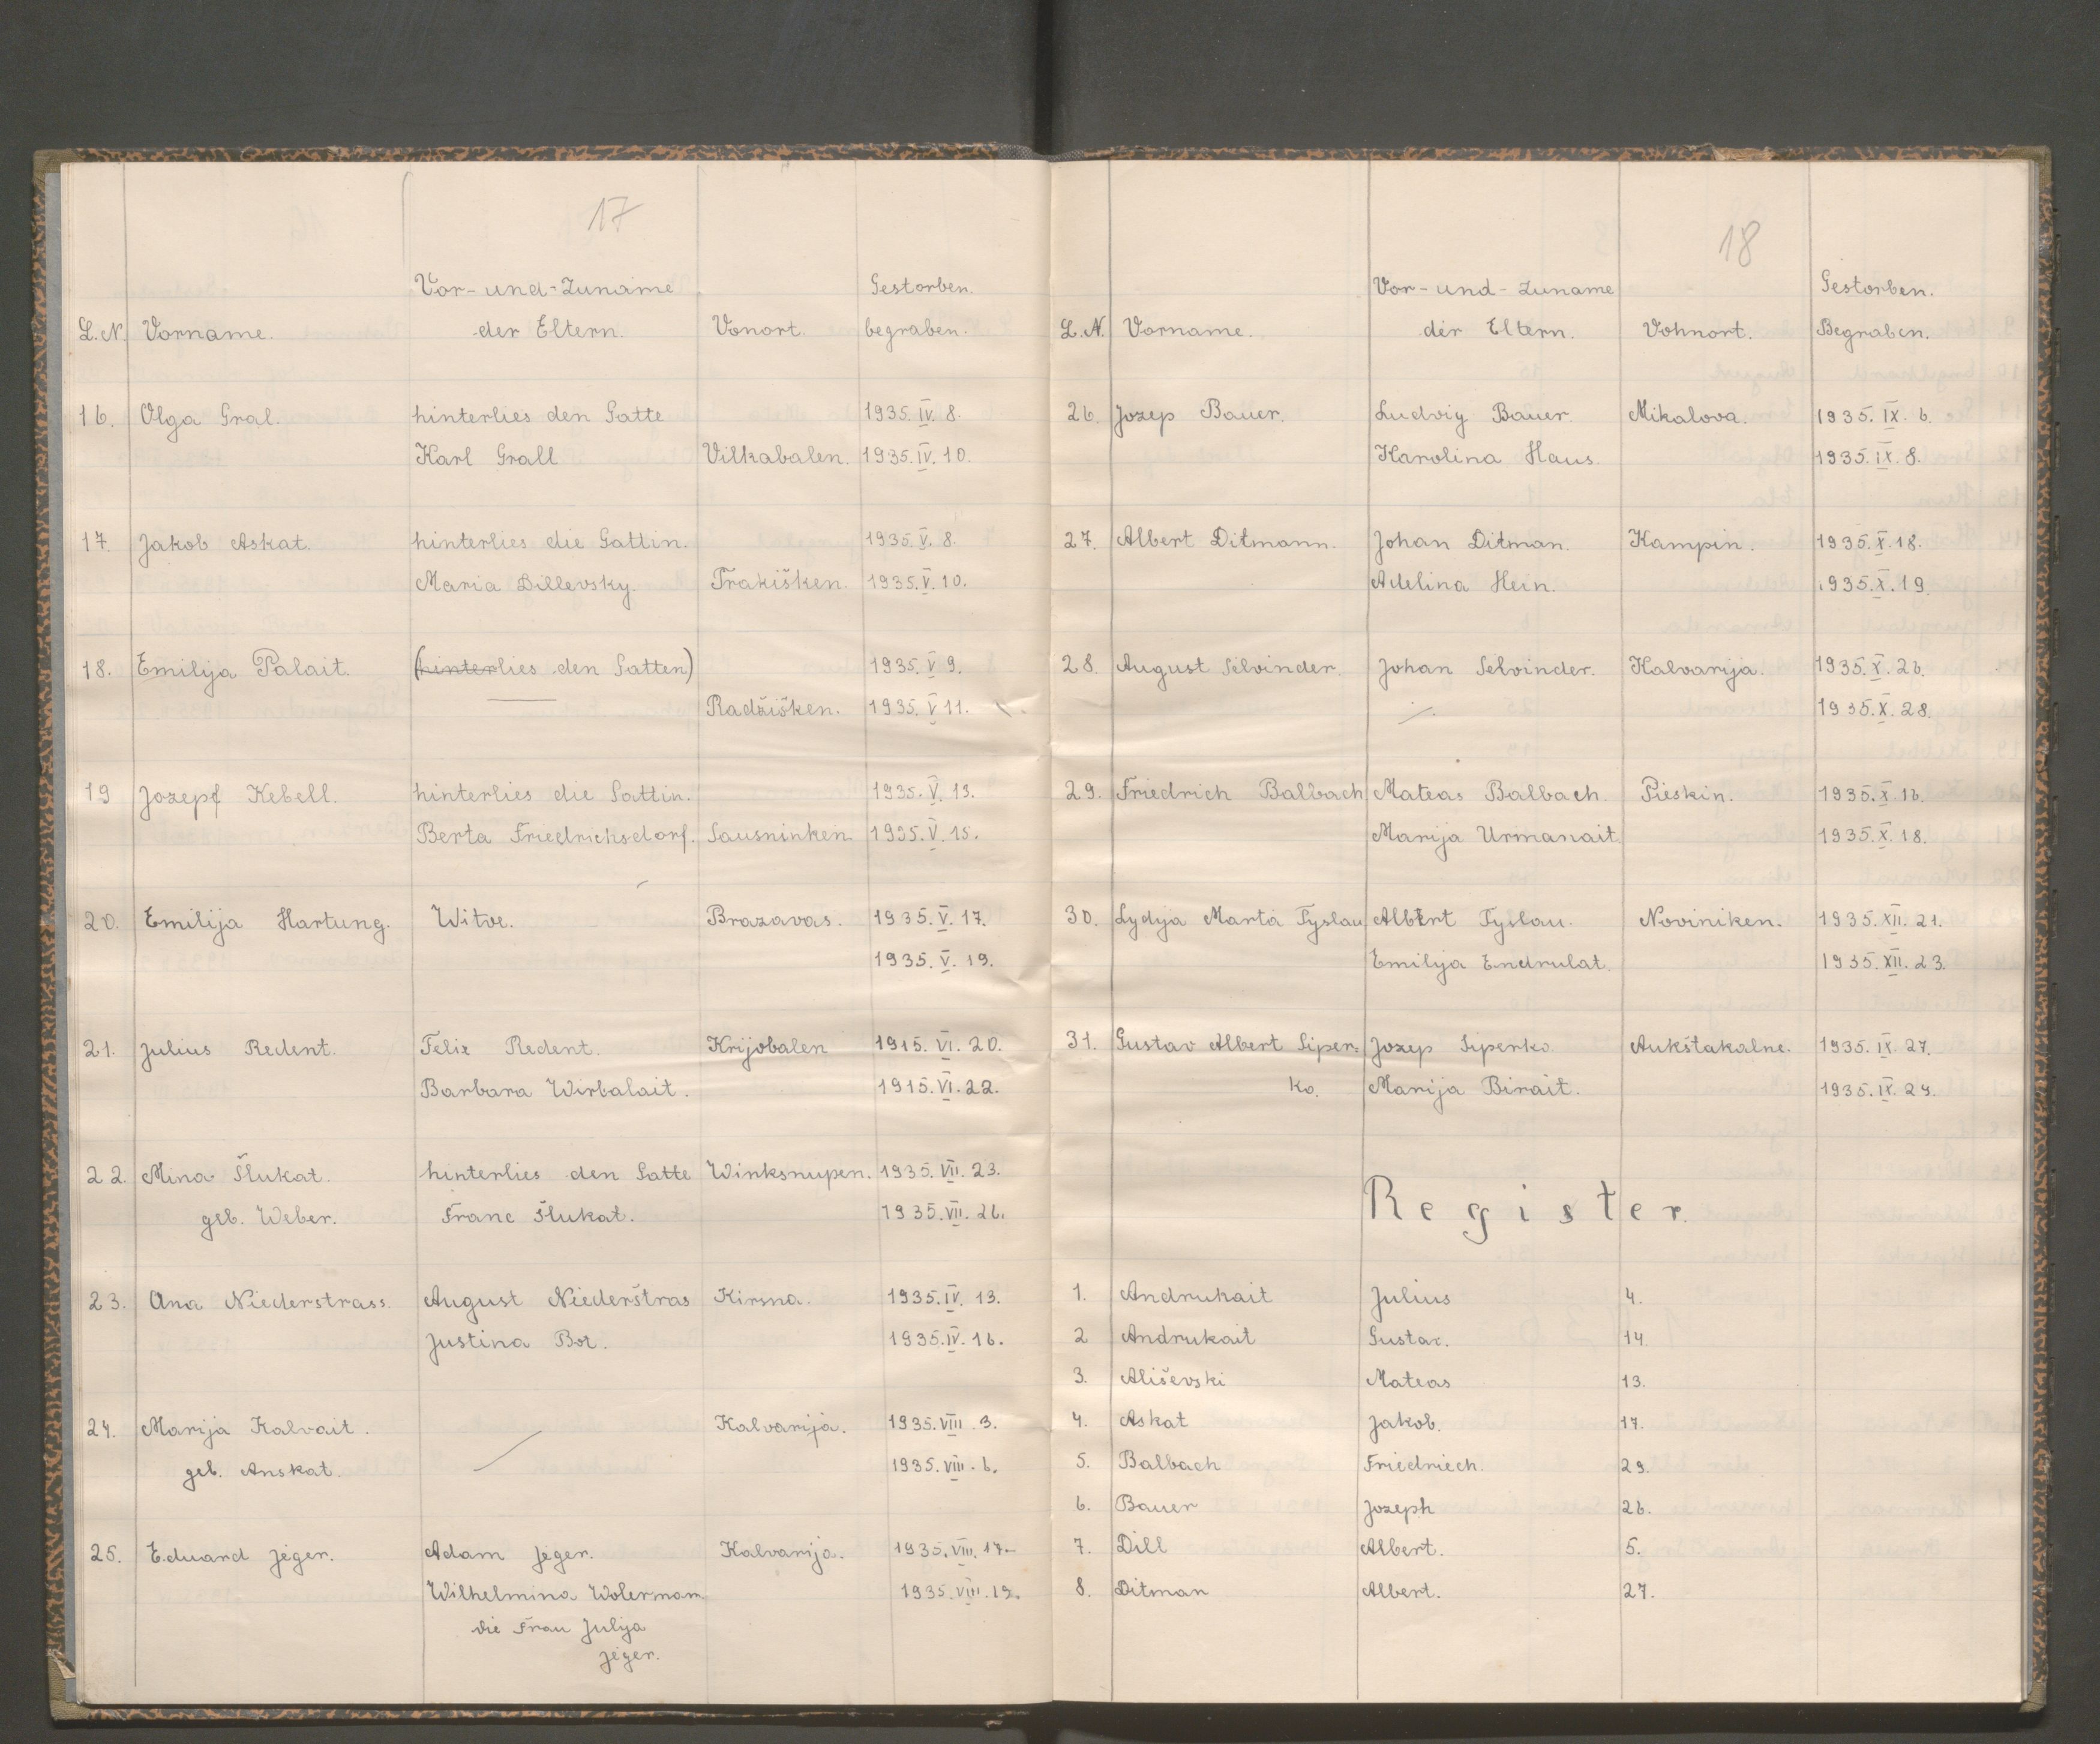 17
Vor-und-Zuname Gestorben.
L.N. Vorname. der Eltern. Vonort. begraben.
16. Olga Gral. hinterlies den Gatte 1935.IV.8.
Karl Grall Vilkabalen. 1935.IV.10.
17. Jakob Askat. hinterlies die Gattin. 1935.V.8.
Maria Dillevsky. Trakišken. 1935.V.10.
18. Emilija Palait. (hinterlies den Gatten) 1935.V 9.
Radžišken. 1935.V 11.
19 Jozepf Kebell. hinterlies die Gattin. 1935.V.13.
Berta Friedrichsdorf. Sausninken 1935.V.15.
20. Emilija Hartung. Witve. Brazavas. 1935.V.17.
1935.V.19.
21. Julius Redent. Felix Redent. Krijobalen 1915.VI.20.
Barbara Wirbalait. 1915.VI.22.
22. Mina Šlukat. hinterlies den Gatte Winksnupen. 1935.VII.23.
geb. Weber. Franc Šlukat. 1935.VII.26.
23. Ana Niederstrass. August Niederštras Kirsna. 1935.IV.13.
Justina Bot. 1935.IV.16.
24. Marija Kalvait. Kalvarija. 1935.VIII.3.
geb. Anskat. 1935.VIII.6.
25. Eduard Jeger. Adam Jeger. Kalvarija. 1935.VIII.17-
Wilhelmina Wolerman 1935.VIII.19.
die Frau Julija
Jeger.
18
Vor-und-Zuname Gestorben.
L.N. Vorname. der Eltern. Vohnort. Begraben.
26. Jozep Bauer. Ludvig Bauer. Mikalova. 1935.IX.6.
Karolina Haus. 1935.IX.8.
27. Albert Ditmann. Johan Ditman. Kampin. 1935.X.18.
Adelina Hein. 1935.X.19.
28. August Selvinder. Johan Selvinder. Kalvarija. 1935.X.26.
1935.X.28.
29. Friedrich Balbach Mateas Balbach. Pieskin. 1935.X.16.
Marija Urmanait. 1935.X.18.
30. Lydija Marta Tyslau Albert Tyslau. Noviniken. 1935.XII.21.
Emilija Endrulat. 1935.XII.23.
31. Gustav Albert Siper= Jozep Siperko. Aukštakalne. 1935.IX.27.
ko. Marija Birait. 1935.IX.29.
Register.
1. Andrukait Julius 4.
2 Andrukait Gustav. 14.
3. Ališevski Mateas 13.
4. Askat Jakob. 17.
5. Balbach Friedriech. 29.
6. Bauer Jozeph 26.
7. Dill Albert. 5.
8. Ditman Albert. 27.